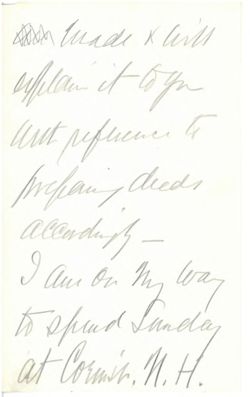 made & will
explain it to you
with reference to
preparing deeds
accordingly —
I am on my way
to spend Sunday
at Cornish. N.H.